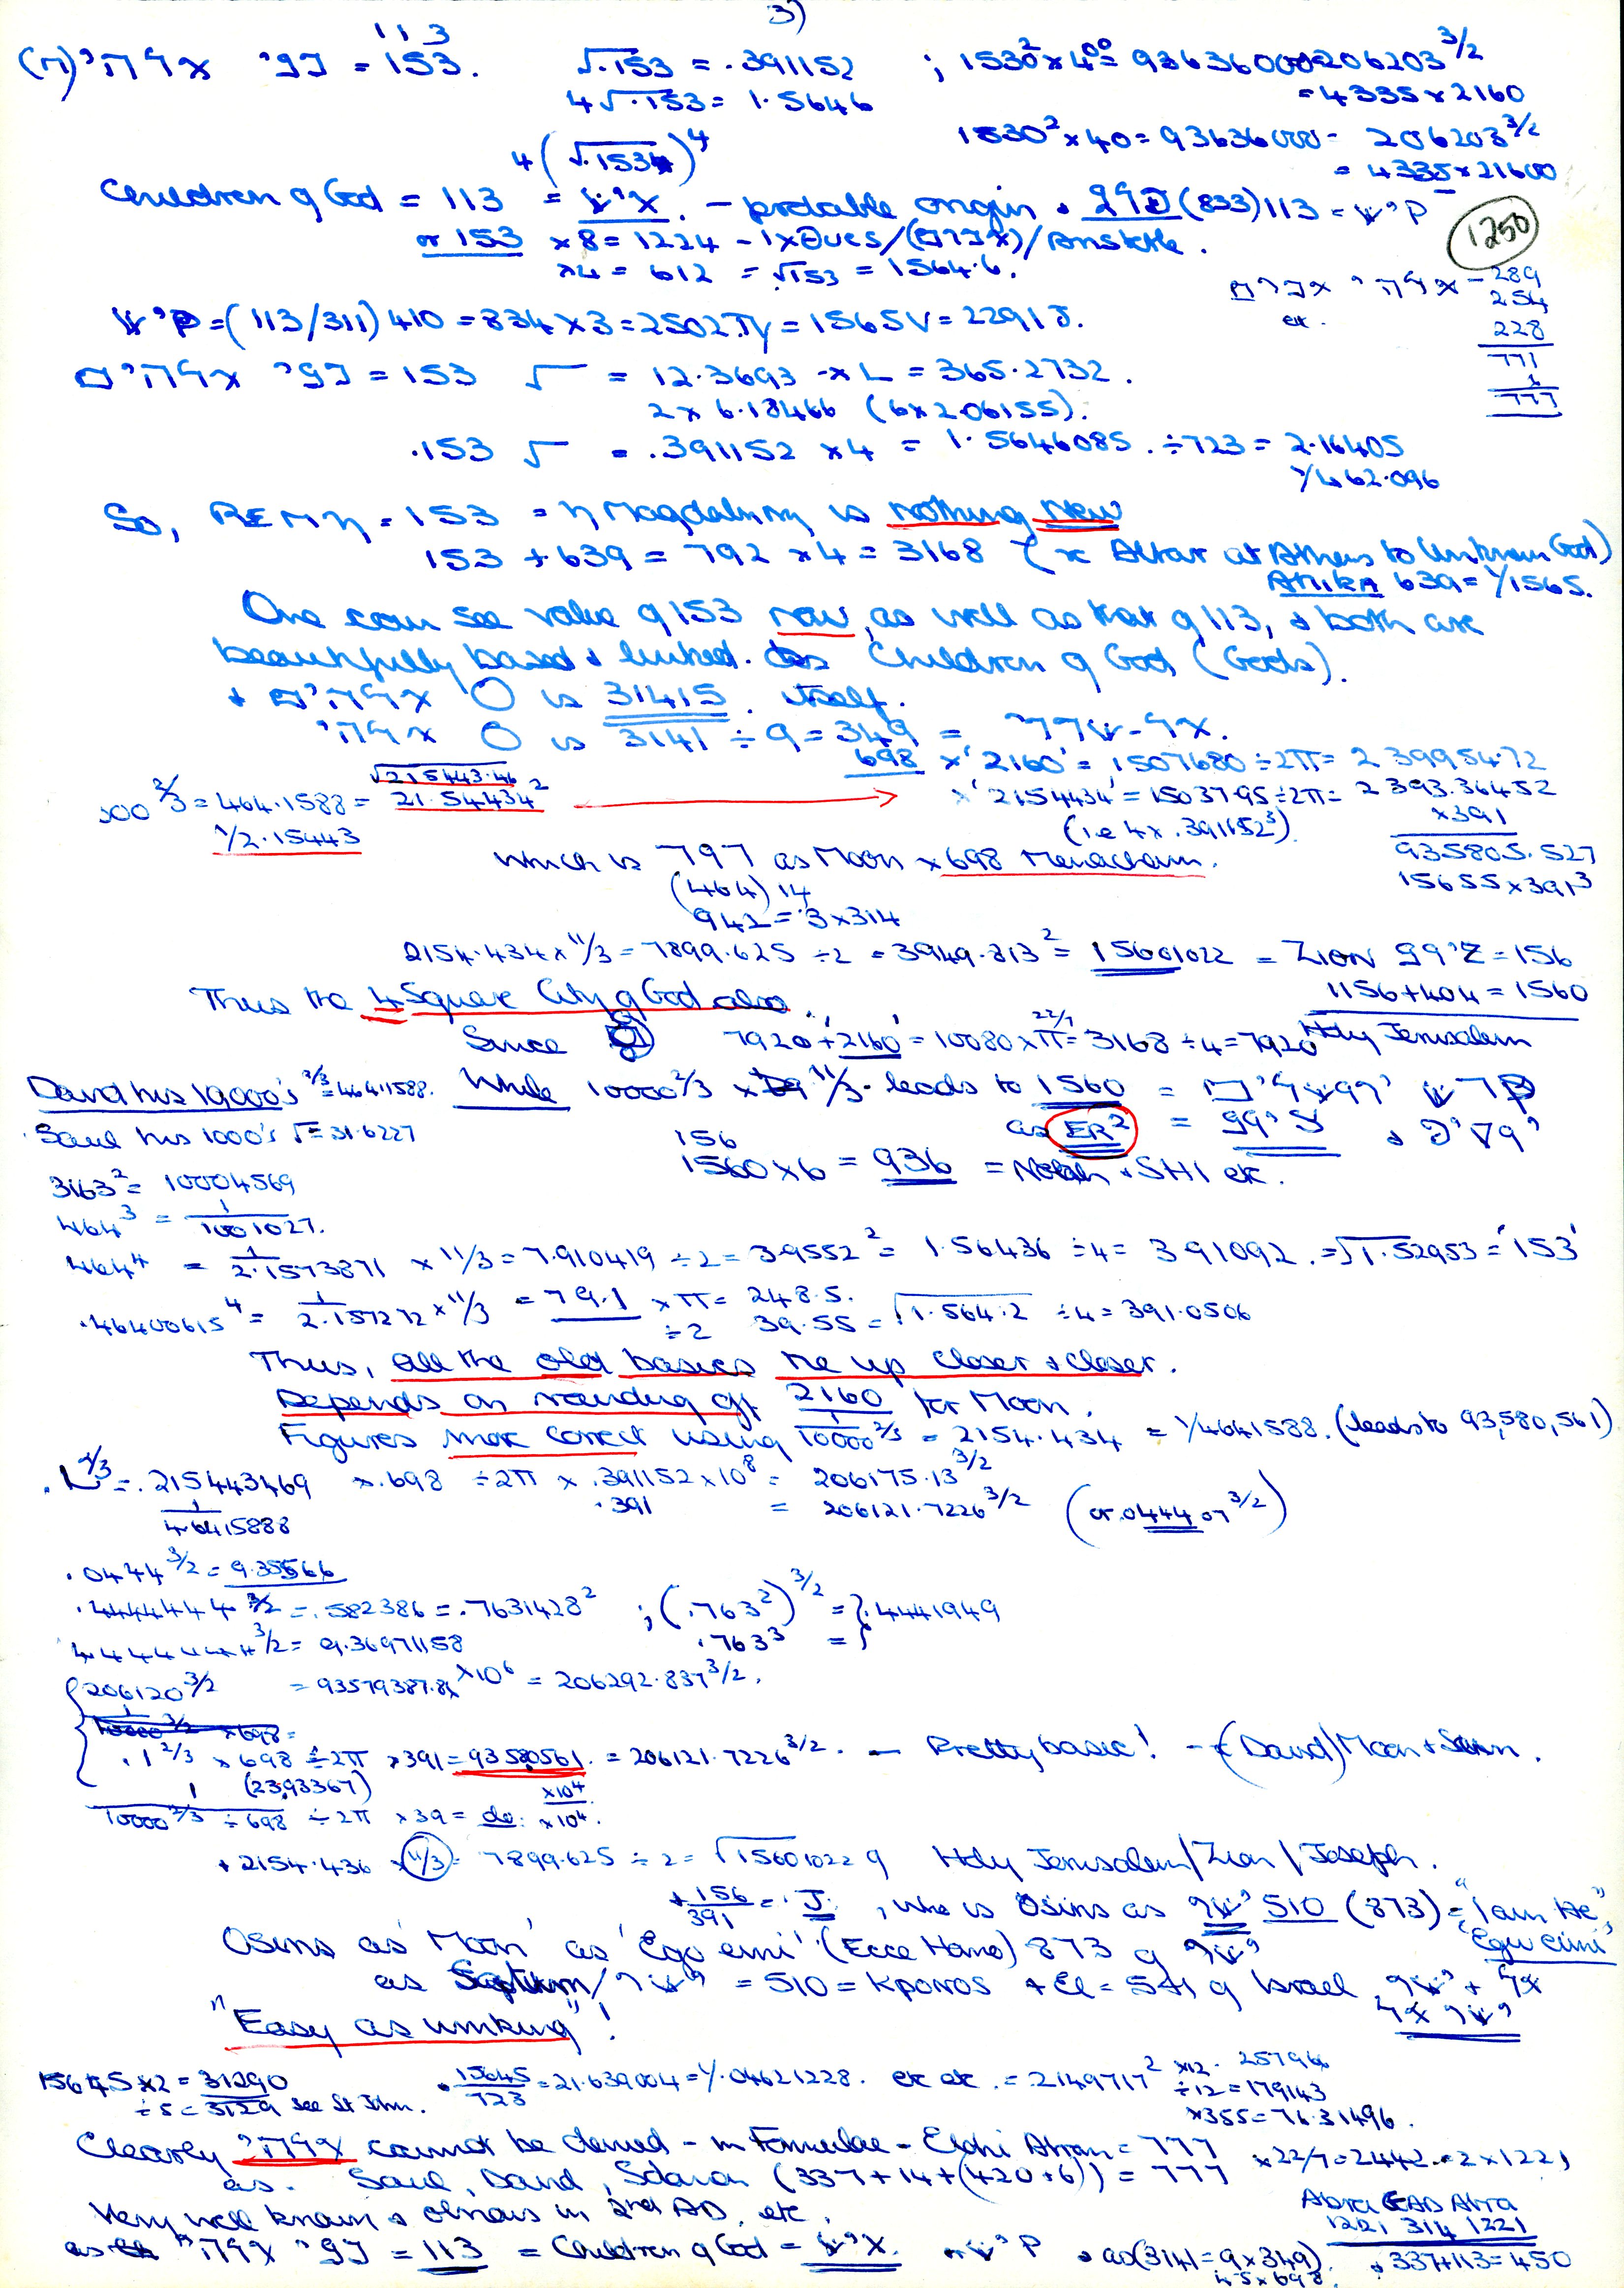 3)
113
(ח) בני אלהי = 153. √.153 = .391152 ; 1530² × 40 = 93636000 = 206203^3/2
4√.153 = 1.5646 = 4335 × 2160
1530² × 40 = 93636000 = 206203^3/2
4(√.153)⁴ = 4335 × 21600
Children of God = 113 = איש. – probable origin & (833) 113 =
or 153 × 8 = 1224 – ιχθυες/ /
1250
×4 = 612 = √153 = 1564.6.
אלהי – 289
254
etc. 228
771
777
= (113/311) 410 = 834 × 3 = 2502 = 1565 = 2291
בני אלהים = 153 √ = 12.3693 × L = 365.2732.
2 × 6.18466 (6 × 2.06155).
.153 √ = .391152 × 4 = 1.5646085. ÷ 723 = 2.16405
1/462.096
So, = 153 = η Magdalene is nothing New
153 + 639 = 792 × 4 = 3168 ( Altar at Athens to Unknown God)
639 = 1/1565.
One can see value of 153 now, as well as that of 113, & both are
beautifully based & linked. Children of God (Gods).
+ אלהים O is 31415. itself.
אלהי O is 3141 ÷ 9 = 349 =
698 × '2160' = 1507680 ÷ 2π = 239954.72
100^2/3 = 464.1588 = √215443.46 21.54434² × '2154434' = 1503795 ÷ 2π = 2393.36452
1/2.15443 (i.e 4 × .391152³) ×391
which is 797 as Moon × 698 Menachem. 935805.527
(464) 14 15655 × 391³
942 = 3 × 314
2154.434 × 11/3 = 7899.625 ÷ 2 = 3949.813² = 15601022 = Zion ציון = 156
Thus the 4 Square City of God also. 1156 + 404 = 1560
Since 7920 + '2160' = 10080 × π 22/7 = 3168 ÷ 4 = 7920 Holy Jerusalem
David his 10,000's ^2/3 = 464.1588. While 10000^2/3 × 11/3 – leads to 1560 =
Saul his 1000's √ = 31.6227 as ER² = ציון &
156
1560 × 6 = 936 = + SHI etc.
3163² = 10004569
464³ = 1/1001027.
464⁴ = 1/2.1573871 × 11/3 = 7.910419 ÷ 2 = 3.9552² = 1.56436 ÷ 4 = 391092. = √1.52953 = '153'
.46400615⁴ = 1/2.157272 × 11/3 = 79.1 × π = 248.5.
÷ 2 39.55 = √1.564.2 ÷ 4 = 391.0506
Thus, all the old basics tie up closer & closer.
Depends on rounding off 2160 for Moon.
Figures more correct using 1/10000^2/3 = 2154.434 = 1/4641588. (leads to 93,580,561)
.L^2/3 = .215443469 × .698 ÷ 2π × .391152 × 10⁸ = 206175.13^3/2
1/4.6415888 .391 = 206121.7226^3/2 (or .0444 07^3/2)
.0444^3/2 = 9.35566
.444444^3/2 = .582386 = .7631428² ; (.763²)^3/2 = .4441949
4.444444^3/2 = 9.36971158 .763³ =
206120^3/2 = 93579387.8 × 10⁶ = 206292.837^3/2.
.1^2/3 × 698 ÷ 2π × 391 = 93580561. = 206121.7226^3/2. – Pretty basic! – (David) Moon & Sun.
(2393367) ×10⁴
1/10000^2/3 ÷ 698 ÷ 2π × 39 = do. ×10⁴.
+ 2154.436 × 11/3 = 7899.625 ÷ 2 = √15601022 of Holy Jerusalem/Zion/Joseph.
+ 156/391 = J, who is Osiris as ישר 510 (873) = "I am He"
Osiris as 'Moon' as 'Ego eimi' (Ecce Homo) 873 of ישר "Ego eimi"
as /ישר = 510 = Κρονος + El = 541 of Israel ישר + אל
"Easy as winking"!
15645 × 2 = 31290 15645/723 = 21.639004 = 1/.04621228. etc etc. = 2149717² ×12 = 25796
÷ 5 = 3129 see St John. ÷12 = 179143
×355 = 76.31496.
Clearly אלהי cannot be denied – in Formulae – Elohi Abram = 777 × 22/7 = 2442 = 2 × 1221
as. Saul, David, Solomon (337 + 14 + (420 + 6)) = 777
Very well known & obvious in 2nd AD, etc. Abra CAD Abra
1221 314 1221
as בני אלהי = 113 = Children of God = & as (3141 = 9 × 349). & 337 + 113 = 450
4.5 × 698